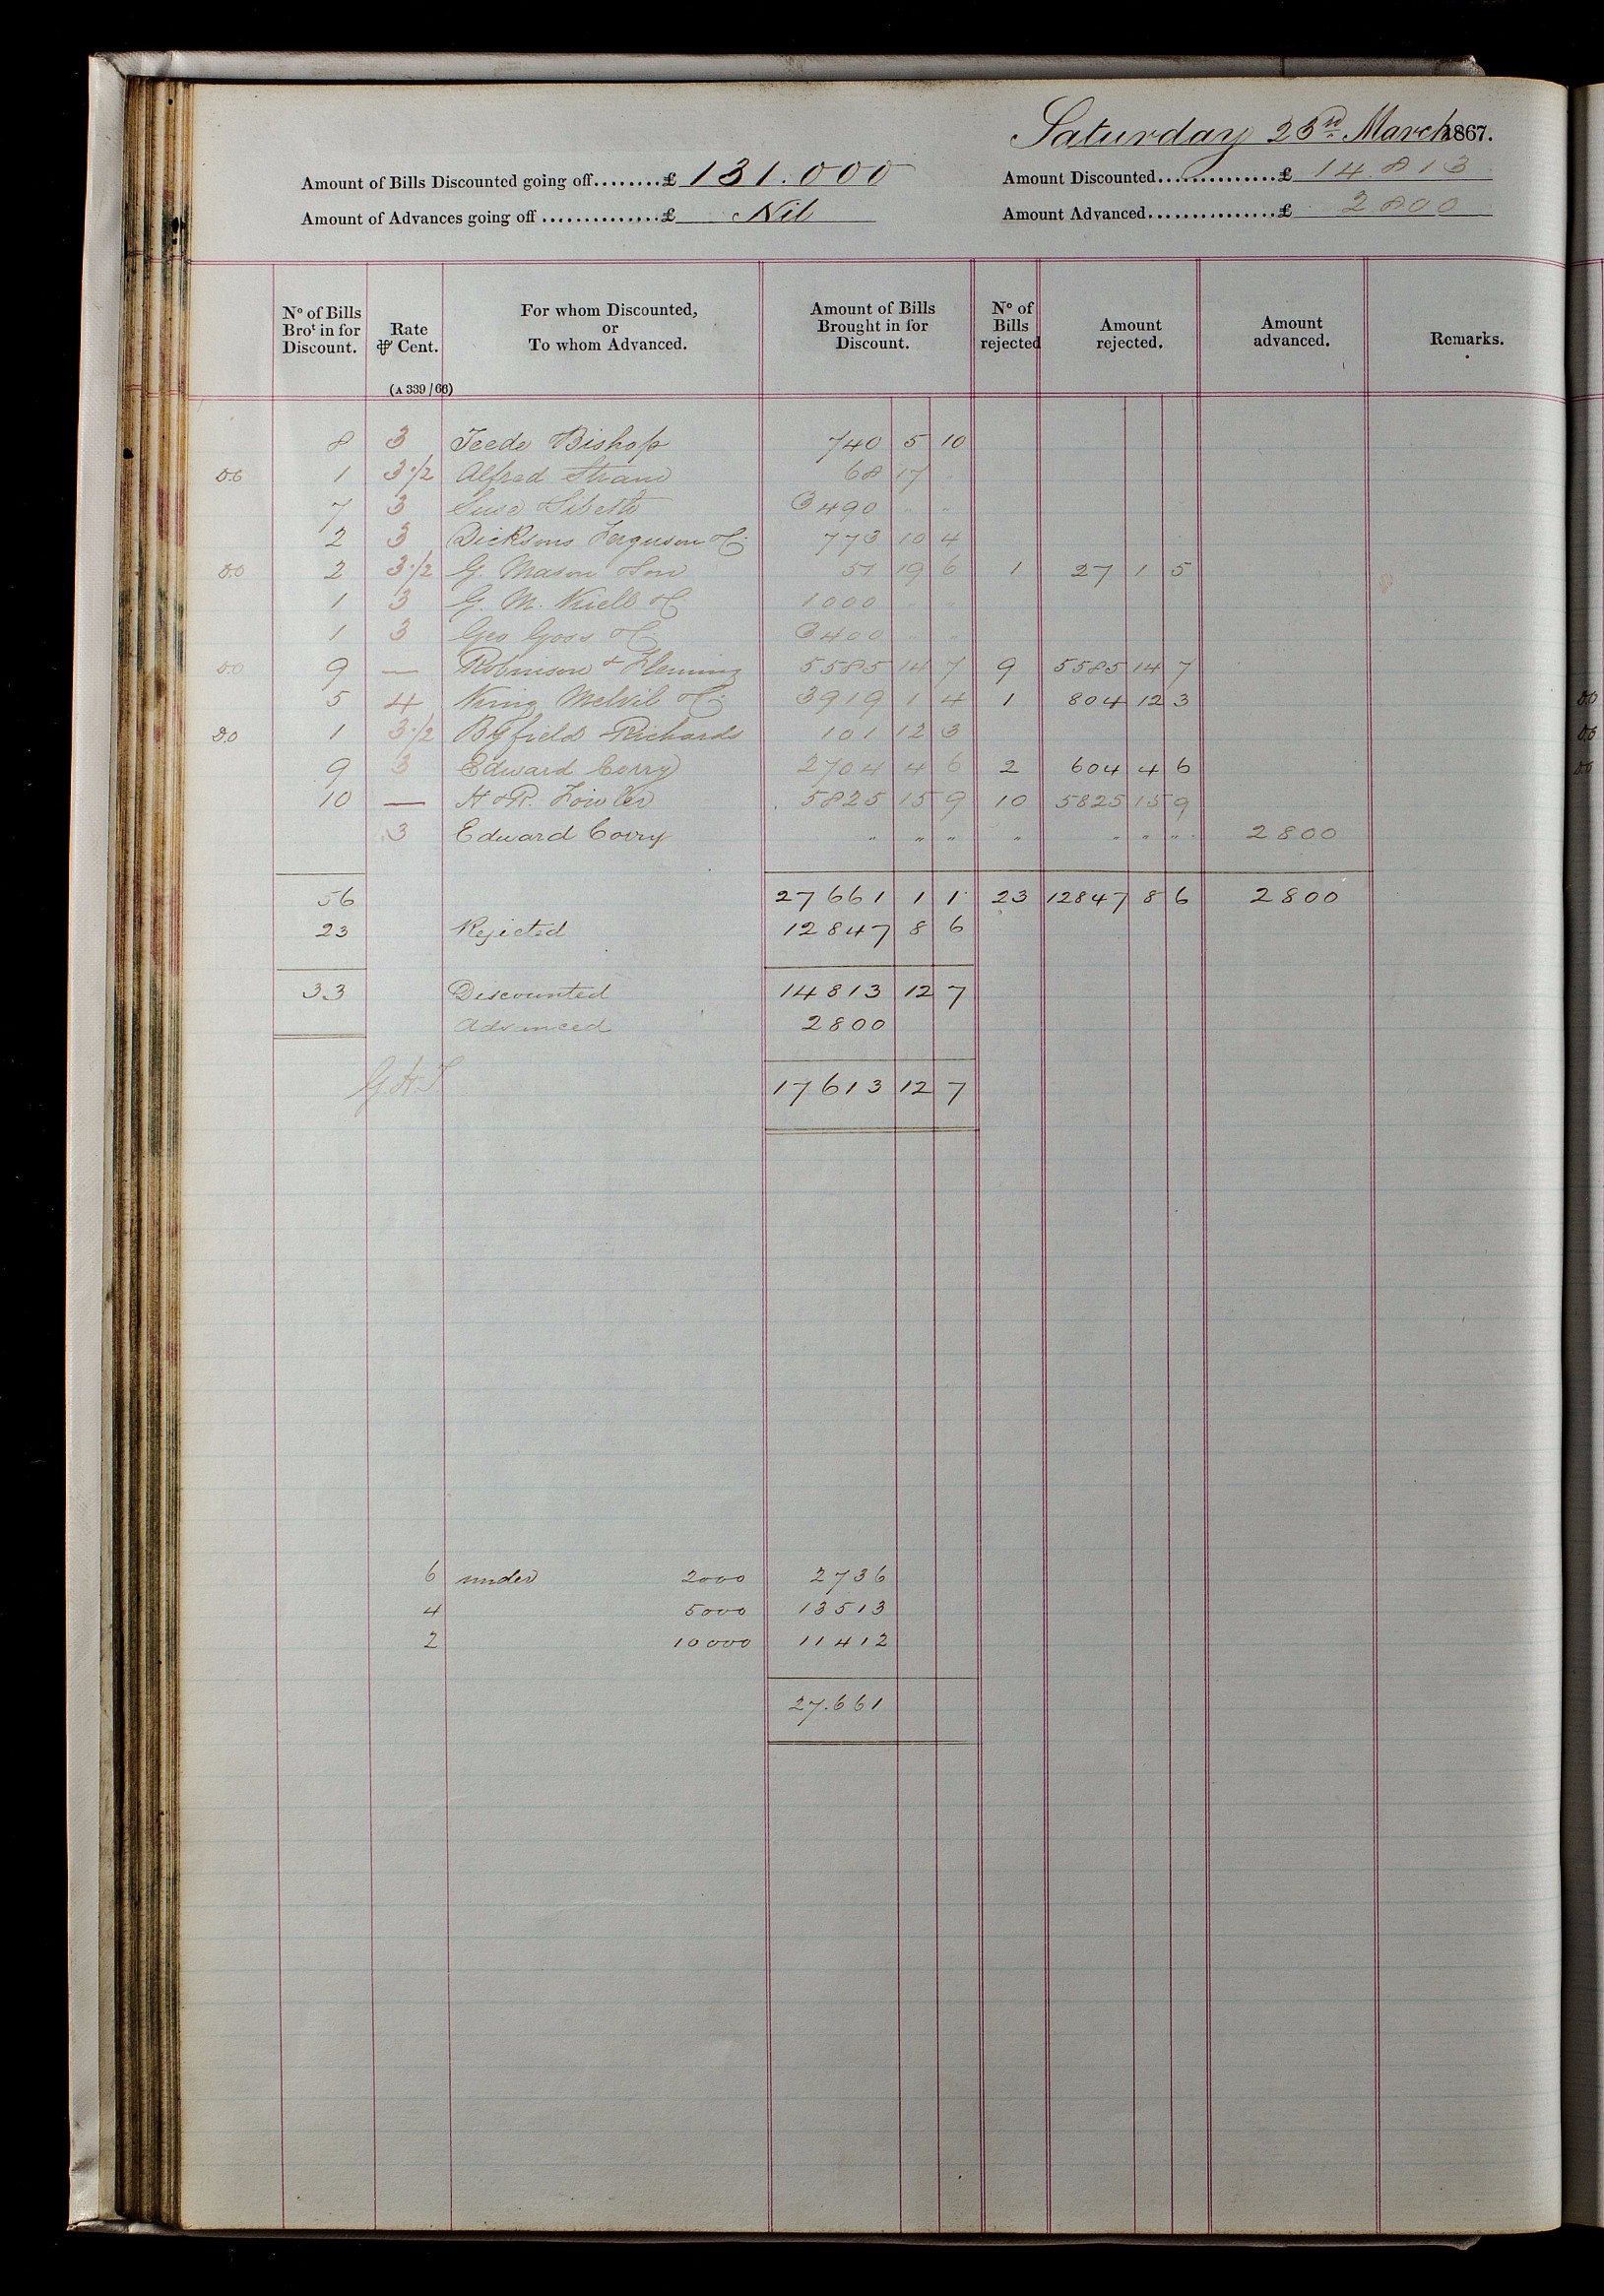 Saturday 23rd March 1867.
Amount of Bills Discounted going off........£ 131.000 Amount Discounted...............£ 14.813
Amount of Advances going off...............£ Nil Amount Advanced................£ 2800
No of Bills Brot in for Discount. Rate ⅌ Cent. For whom Discounted, or To whom Advanced. Amount of Bills Brought in for Discount. No of Bills rejected Amount rejected. Amount advanced. Remarks.
(A 339/66)
8 3 Teede Bishop 740 5 10
D.O 1 3·/2 Alfred Straud 68 17 "
7 3 Suse Sibeth 3490 " "
2 3 Dicksons Ferguson & Co 773 10 4
D.O 2 3·/2 G. Mason & Son 57 19 6 1 27 1 5
1 3 G. M. Kiell & Co 1000 " "
1 3 Geo Goss & Co 3400 " "
D.O 9 — Robinson & Fleming 5585 14 7 9 5585 14 7
5 4 King Melvil & Co 3919 1 4 1 804 12 3
D.O 1 3·/2 Byfield Richards 101 12 3
9 3 Edward Corry 2704 4 6 2 604 4 6
10 — H & R. Fowler 5825 15 9 10 5825 15 9
3 Edward Corry " " " " " " " 2800
56 27661 1 1 23 12847 8 6 2800
23 Rejected 12847 8 6
33 Discounted 14813 12 7
Advanced 2800
G.H.S 17613 12 7
6 under 2000 2736
4 5000 13513
2 10000 11412
27.661